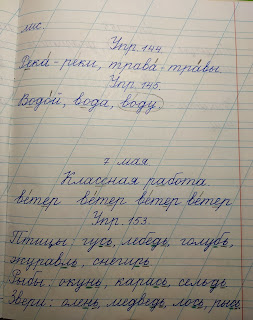 лис.
Упр. 144.
Река́ - реки, трава́ - тра́вы.
Упр. 146.
Водо́й, вода, во́ду.
7 мая.
Классная работа
ве́тер ве́тер ве́тер ве́тер
Упр. 153.
Птицы: гусь, лебедь, голубь,
журавль, снегирь
Рыбы: окунь, карась, сельдь
Звери: олень, медведь, лось, рысь